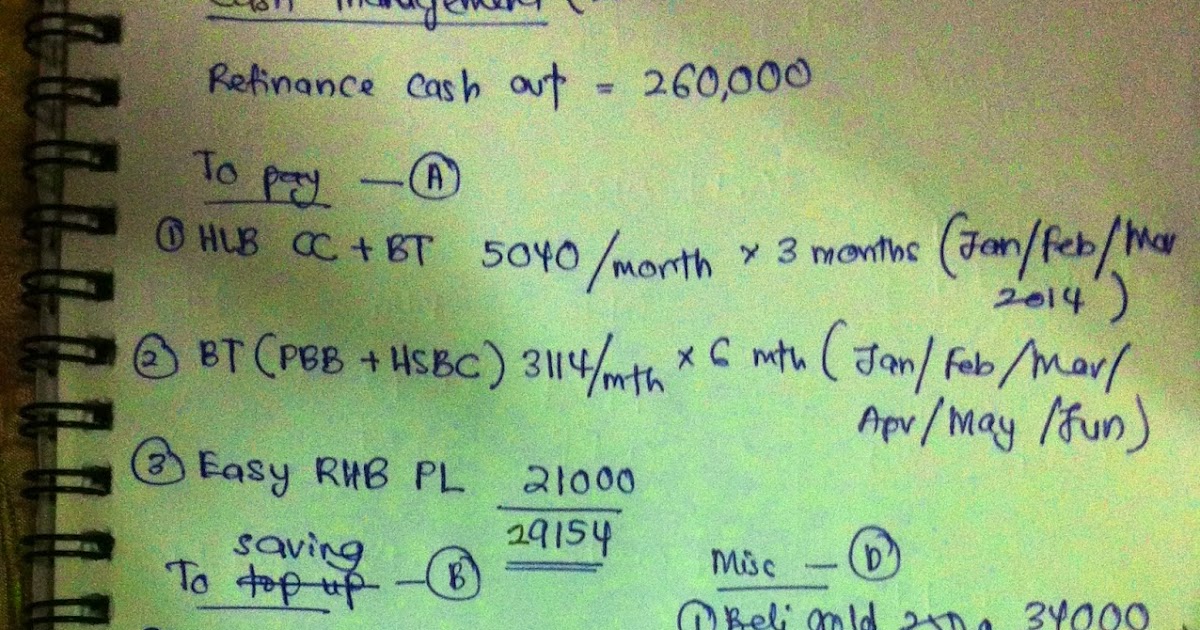 Cash Management (
Refinance cash out = 260,000
To pay — Ⓐ
① HLB CC + BT 5040/month × 3 months (Jan/Feb/Mar
2014)
② BT (PBB + HSBC) 3114/mth × 6 mth (Jan/Feb/Mar/
Apr/May/Jun)
③ Easy RHB PL 21000
29154
saving
To top up — Ⓑ
Misc — Ⓓ
① Beli gold 34000